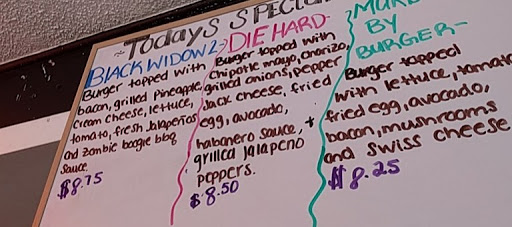 ~Today's SPECIALS
BLACK WIDOW 2~
Burger topped with
bacon, grilled pineapple,
cream cheese, lettuce,
tomato, fresh jalapeños
and zombie boogie bbq
sauce.
$8.75
DIE HARD-
Burger topped with
chipotle mayo, chorizo,
grilled onions, pepper
Jack cheese, fried
egg, avocado,
habanero sauce, +
grilled jalapeno
peppers.
$8.50
BY
BURGER~
Burger topped
with lettuce, tomato
fried egg, avocado,
bacon, mushrooms
and swiss cheese
$8.25